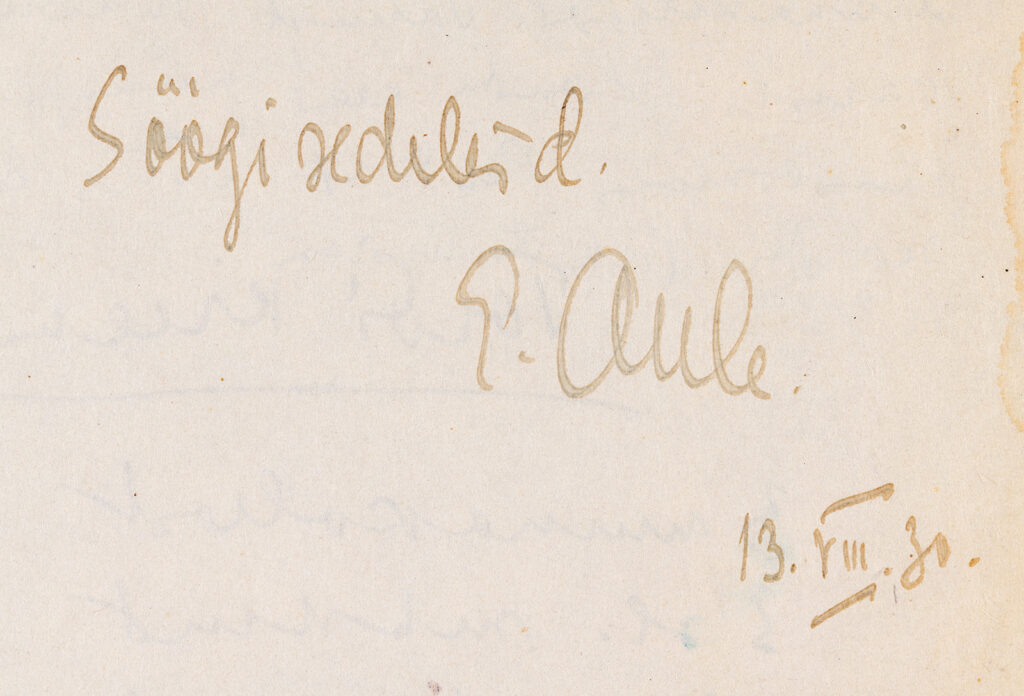 Söögisedelid.
E. Aule.
13. VIII. 30.